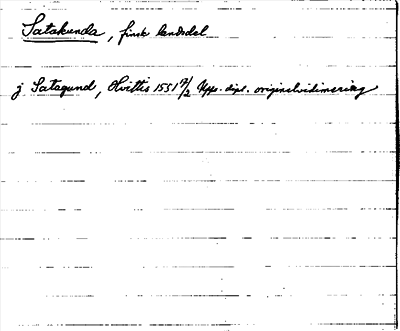 Satakunda, finsk landsdel
j Satagund, Hvittis 1551 7/2 Upps. dipl. originalvidimering